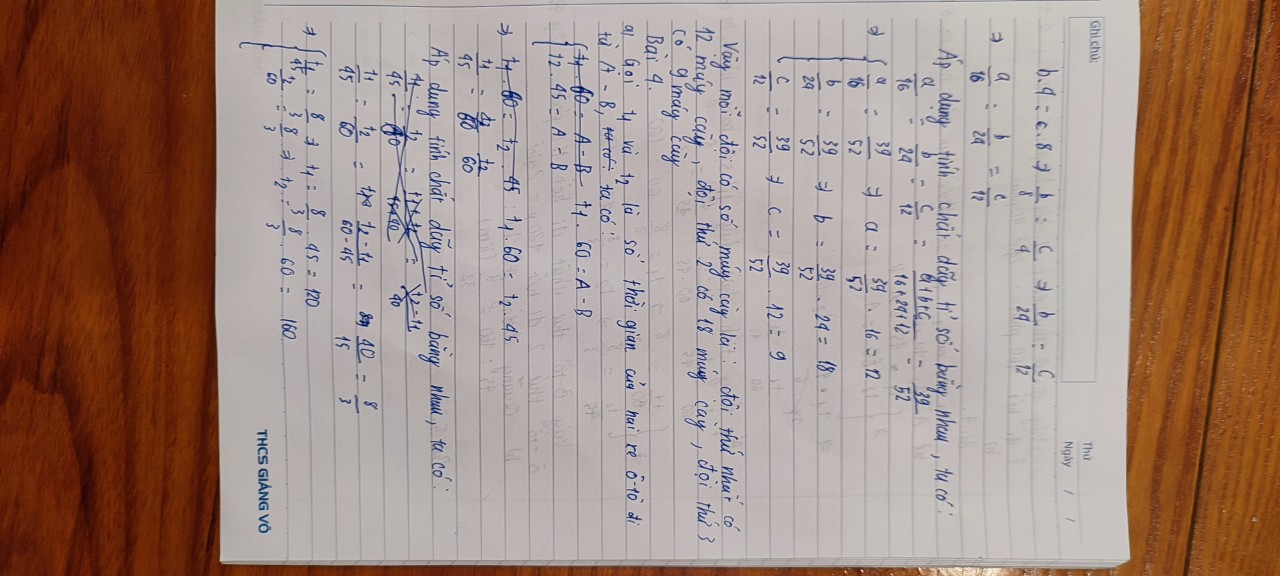 Ghi chú:
Thứ
Ngày / /
b.4 = c.8 ⇒ b/8 = c/4 ⇒ b/24 = c/12
⇒ a/16 = b/24 = c/12
Áp dụng tính chất dãy tỉ số bằng nhau, ta có:
a/16 = b/24 = c/12 = a+b+c/16+24+12 = 39/52
⇒ { a/16 = 39/52 ⇒ a = 39/52 . 16 = 12
b/24 = 39/52 ⇒ b = 39/52 . 24 = 18
c/12 = 39/52 ⇒ c = 39/52 . 12 = 9
Vậy mỗi đội có số máy cày là: đội thứ nhất có
12 máy cày, đội thứ 2 có 18 máy cày, đội thứ 3
có 9 máy cày
Bài 4.
a) Gọi t1 và t2 là số thời gian của hai xe ô-tô đi
từ A - B, ta có:
{ t1 . 60 = A - B t1 . 60 = A - B
t2 . 45 = A - B
⇒ t1 . 60 = t2 . 45 t1 . 60 = t2 . 45
t1/45 = t2/60
Áp dụng tính chất dãy tỉ số bằng nhau, ta có:
t1/45 = t2/60 = t2-t1/60-45 = 40/15 = 8/3
⇒ { t1/45 = 8/3 ⇒ t1 = 8/3 . 45 = 120
t2/60 = 8/3 ⇒ t2 = 8/3 . 60 = 160
THCS GIẢNG VÕ